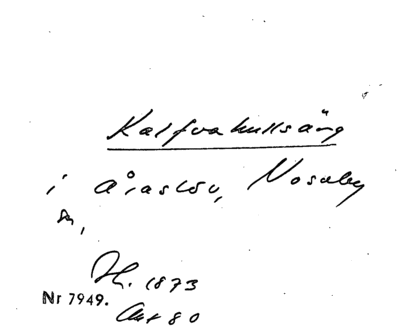 Kalfvahultsäng
i Åraslöv, Nosaby
sn,
H. 1873
Nr 7949.
Akt 80